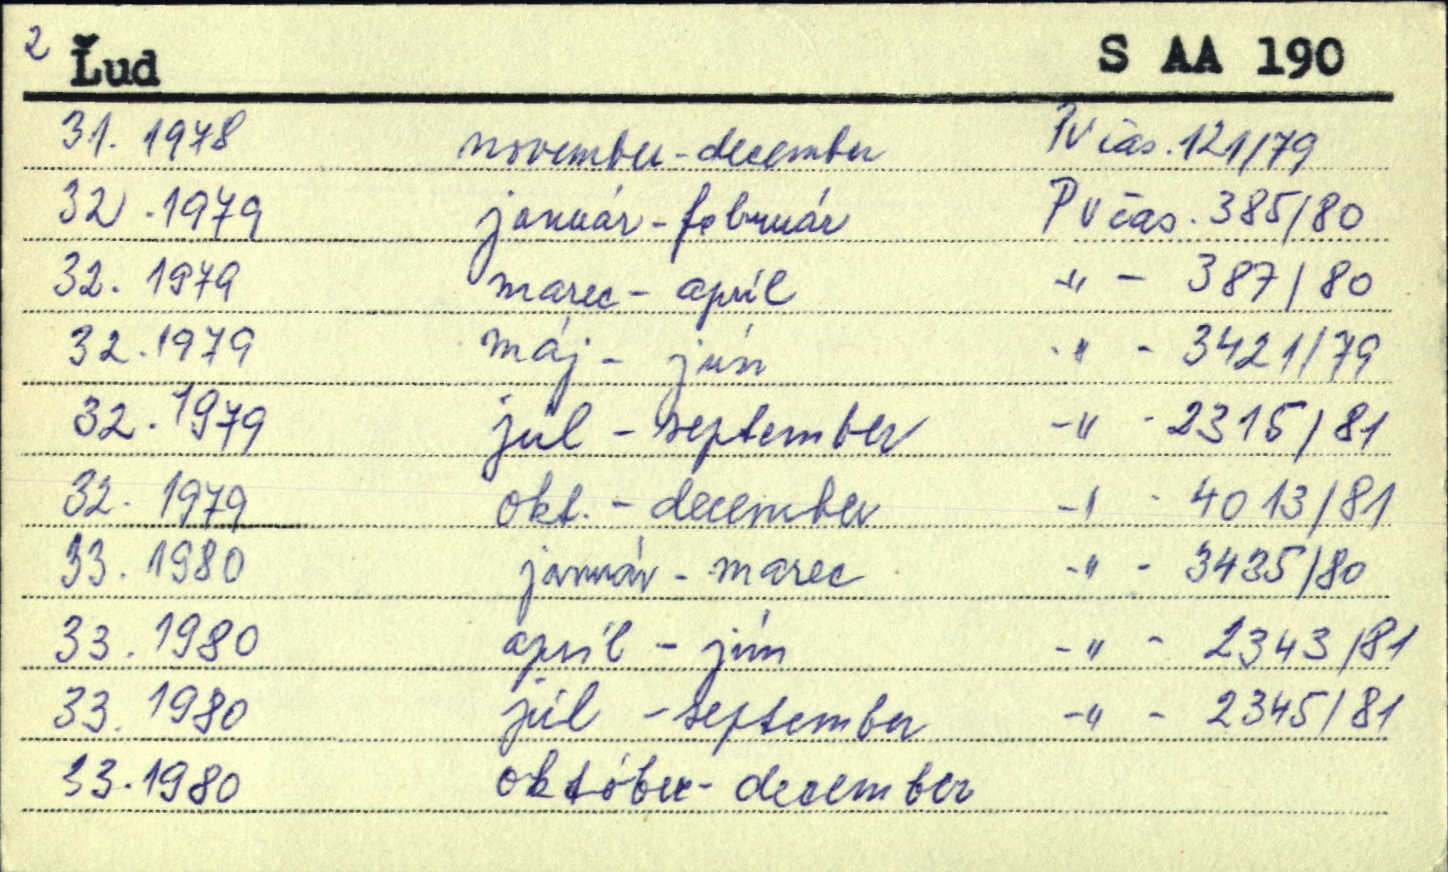 2 Ľud S AA 190
31. 1978 november - december PV čas. 121/79
32. 1979 január - február PV čas. 385/80
32. 1979 marec - apríl -"- 387/80
32. 1979 máj - jún -"- 3421/79
32. 1979 júl - september -"- 2315/81
32. 1979 okt. - december -"- 4013/81
33. 1980 január - marec -"- 3435/80
33. 1980 apríl - jún -"- 2343/81
33. 1980 júl - september -"- 2345/81
33. 1980 október - december